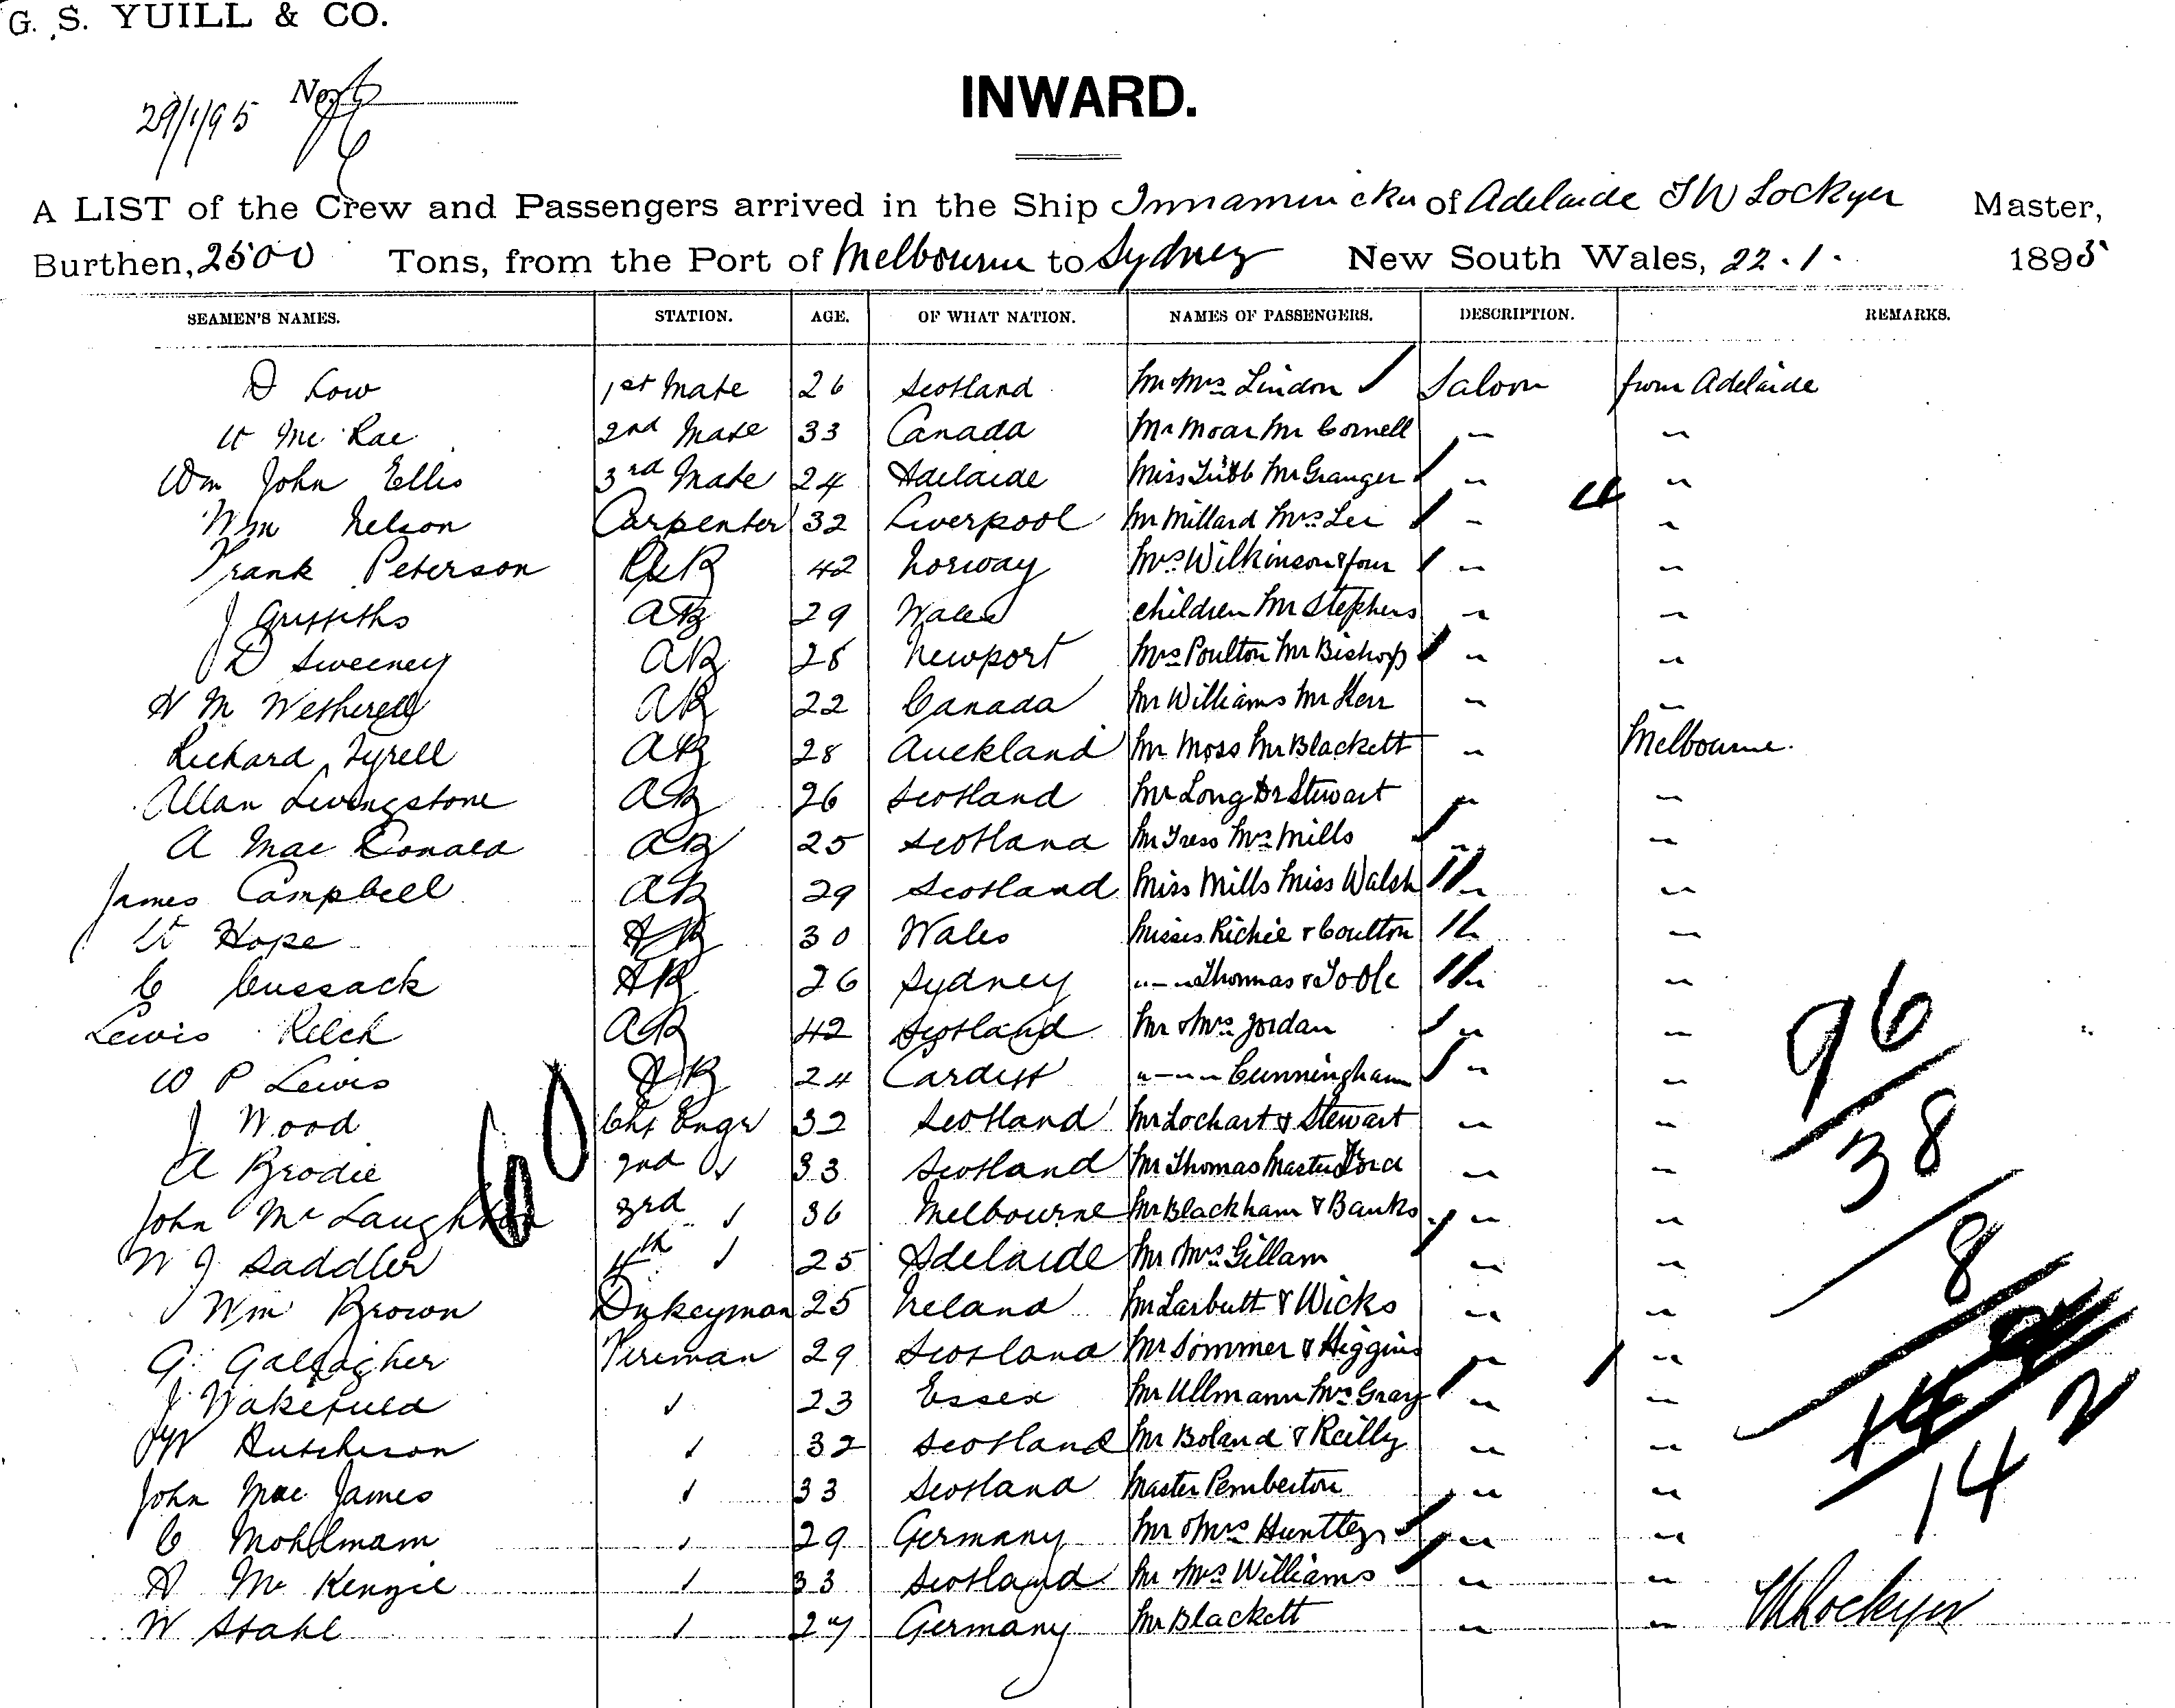 G. S. YUILL & CO.
29/1/95 No.
INWARD.
A LIST of the Crew and Passengers arrived in the Ship Innamincka of Adelaide T W Lockyer Master,
Burthen, 2500 Tons, from the Port of Melbourne to Sydney New South Wales, 22.1. 1895
SEAMEN'S NAMES. STATION. AGE. OF WHAT NATION. NAMES OF PASSENGERS. DESCRIPTION. REMARKS.
D Low 1st Mate 26 Scotland Mr Mrs Lindon Saloon from Adelaide
Mc Rae 2nd Mate 33 Canada Mr Moar Mr Cornell " "
Wm John Ellis 3rd Mate 24 Adelaide Miss Tubb Mr Granger " "
Wm Nelson Carpenter 32 Liverpool Mr Millard Mrs Lee " "
Frank Peterson 42 Norway Mrs Wilkinson & four " "
J Griffiths AB 29 Wales children Mr Stephens " "
D Sweeney AB 28 Newport Mrs Poulton Mr Bishop " "
H M Wetherell AB 22 Canada Mr Williams Mr Kerr " "
Richard Tyrell AB 28 Auckland Mr Moss Mr Blackett " Melbourne.
Allan Livingstone AB 26 Scotland Mr Long Dr Stewart " "
A Mac Donald AB 25 Scotland Mr Tress Mrs Mills " "
James Campbell AB 29 Scotland Miss Mills Miss Walsh " "
Hope AB 30 Wales Misses Richie & Coulton " "
C Cussack AB 26 Sydney " — " Thomas & Toole " "
Lewis Kelch AB 42 Scotland Mr & Mrs Jordan " "
W P Lewis AB 24 Cardiff " — " Cunningham " "
J Wood Chf Engr 32 Scotland Mr Lochart & Stewart " "
A Brodie 2nd " 33 Scotland Mr Thomas Master Ford " "
John Mc Laughlan 3rd " 36 Melbourne Mr Blackham & Banks " "
W J Saddler 4th " 25 Adelaide Mr Mrs Gillam " "
Wm Brown Dnkeyman 25 Ireland Mr Larbutt & Wicks " "
G. Gallagher Fireman 29 Scotland Mr Sommer & Higgins " "
J Wakefield " 23 Essex Mr Ullmann Mrs Gray " "
Hutchison " 32 Scotland Mr Boland & Reilly " "
John Mac James " 33 Scotland Master Pemberton " "
C Mohlmam " 29 Germany Mr & Mrs Huntley " "
A Mc Kenzie " 33 Scotland Mr Mrs Williams " "
W Stahl " 27 Germany Mr Blackett " "
96
38
8
2
14
TW Lockyer